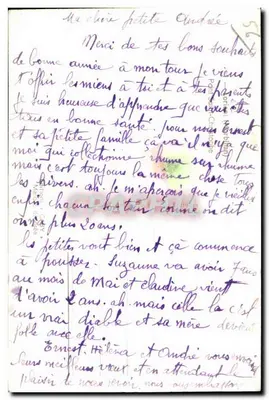 Ma chère petite Andrée
Merci de tes bons souhaits
de bonne année à mon tour je viens
t'offrir les miens à toi et à tes parents
je suis heureuse d'apprendre que vous êtes
tous en bonne santé pour nous Ernest
et sa petite famille ça va il n'y a que
moi qui collectionne rhume sur rhume
mais c'est toujours la même chose tous
les hivers. ah je m'aperçois que je vieillis
enfin chacun son tour comme on dit
on n'a plus 20 ans.
les petits vont bien et ça commence
à pousser. Suzanne va avoir 7 ans
au mois de Mai et Claudine vient
d'avoir 2 ans. ah mais celle là c'est
un vrai diable et sa mère devient
folle avec elle.
Ernest Hélèna et André vous
leurs meilleurs vœux et en attendant le
plaisir de vous revoir nous